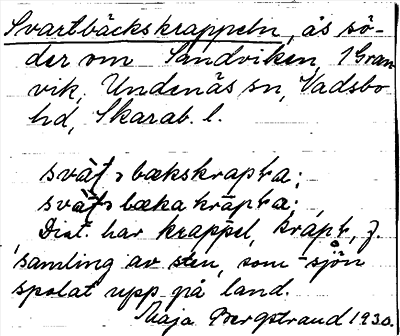 Svartbäckskrappeln, ås sö-
der om Sandviken, 1 Gran
vik, Undenäs sn, Vadsbo
hd, Skarab. l.
bækskrapta;
bæka krapta;
Dial. har krappel, krapt, f.
samling av sten, som sjön
spolat upp på land.
Maja Bergstrand 1930.